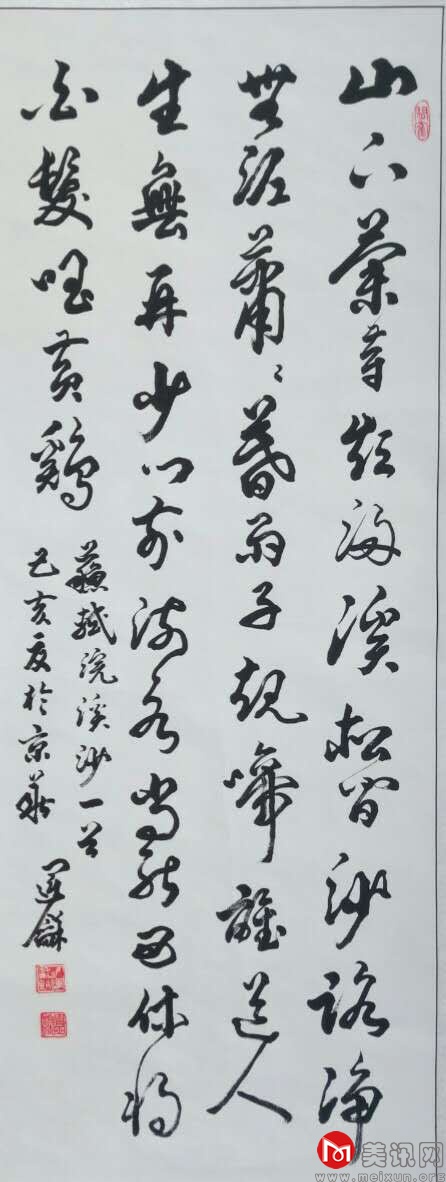 山下蘭芽短浸溪松間沙路淨
無泥蕭〻暮雨子規啼誰道人
生無再少門前流水尚能西休將
白髮唱黃雞
蘇軾浣溪沙一首
己亥夏於京華
美讯网
www.meixun.org